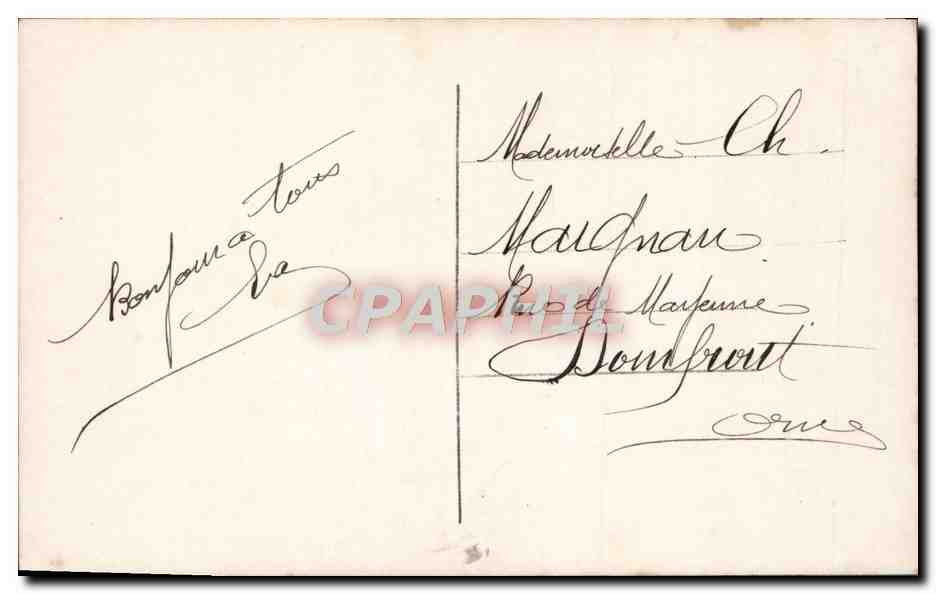 Bonjour a tous
Mademoiselle Ch
Maignan
Rue de Mayenne
Domfront
Orne
CPAPHIL